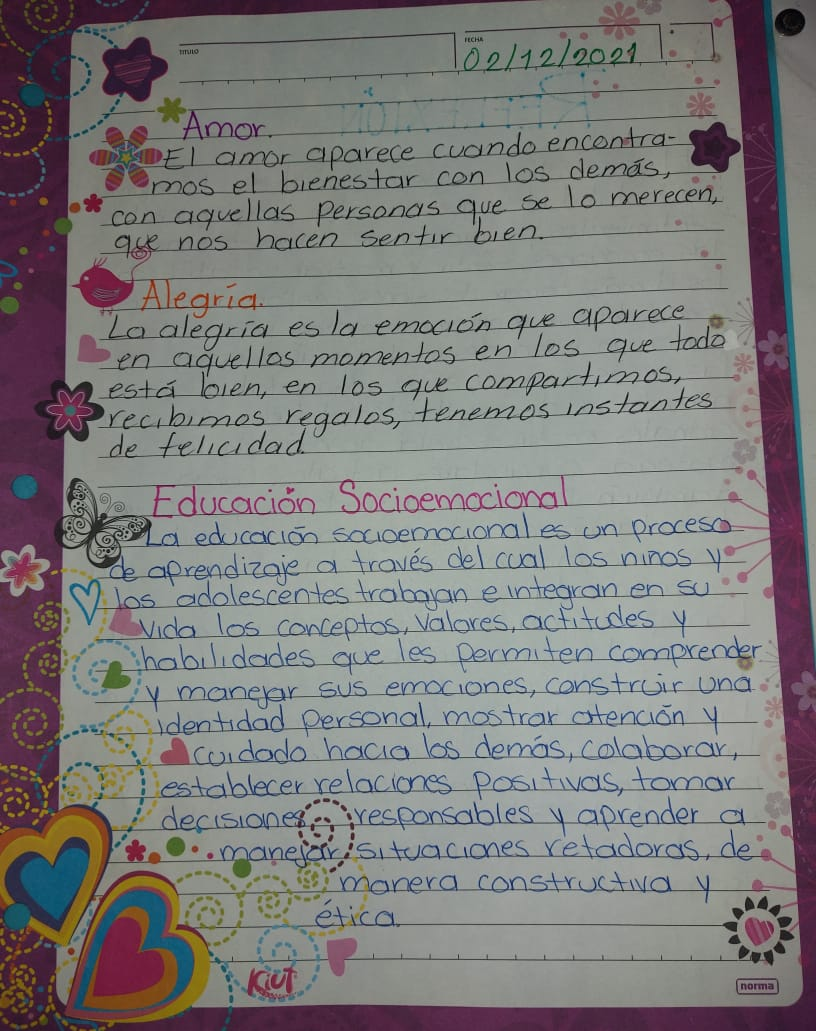 TITULO
FECHA
02/12/2021
Amor.
El amor aparece cuando encontra-
mos el bienestar con los demás,
con aquellas personas que se lo merecen,
que nos hacen sentir bien.
Alegría.
La alegría es la emoción que aparece
en aquellos momentos en los que todo
está bien, en los que compartimos,
recibimos regalos, tenemos instantes
de felicidad.
Educación Socioemocional
La educación socioemocional es un proceso
de aprendizaje a través del cual los ninos y
los adolescentes trabajan e integran en su
vida los conceptos, valores, actitudes y
habilidades que les permiten comprender
y manejar sus emociones, construir una
identidad personal, mostrar atención y
cuidado hacia los demás, colaborar,
establecer relaciones positivas, tomar
decisiones responsables y aprender a
manejar situaciones retadoras, de
manera constructiva y
ética.
KiUT
norma